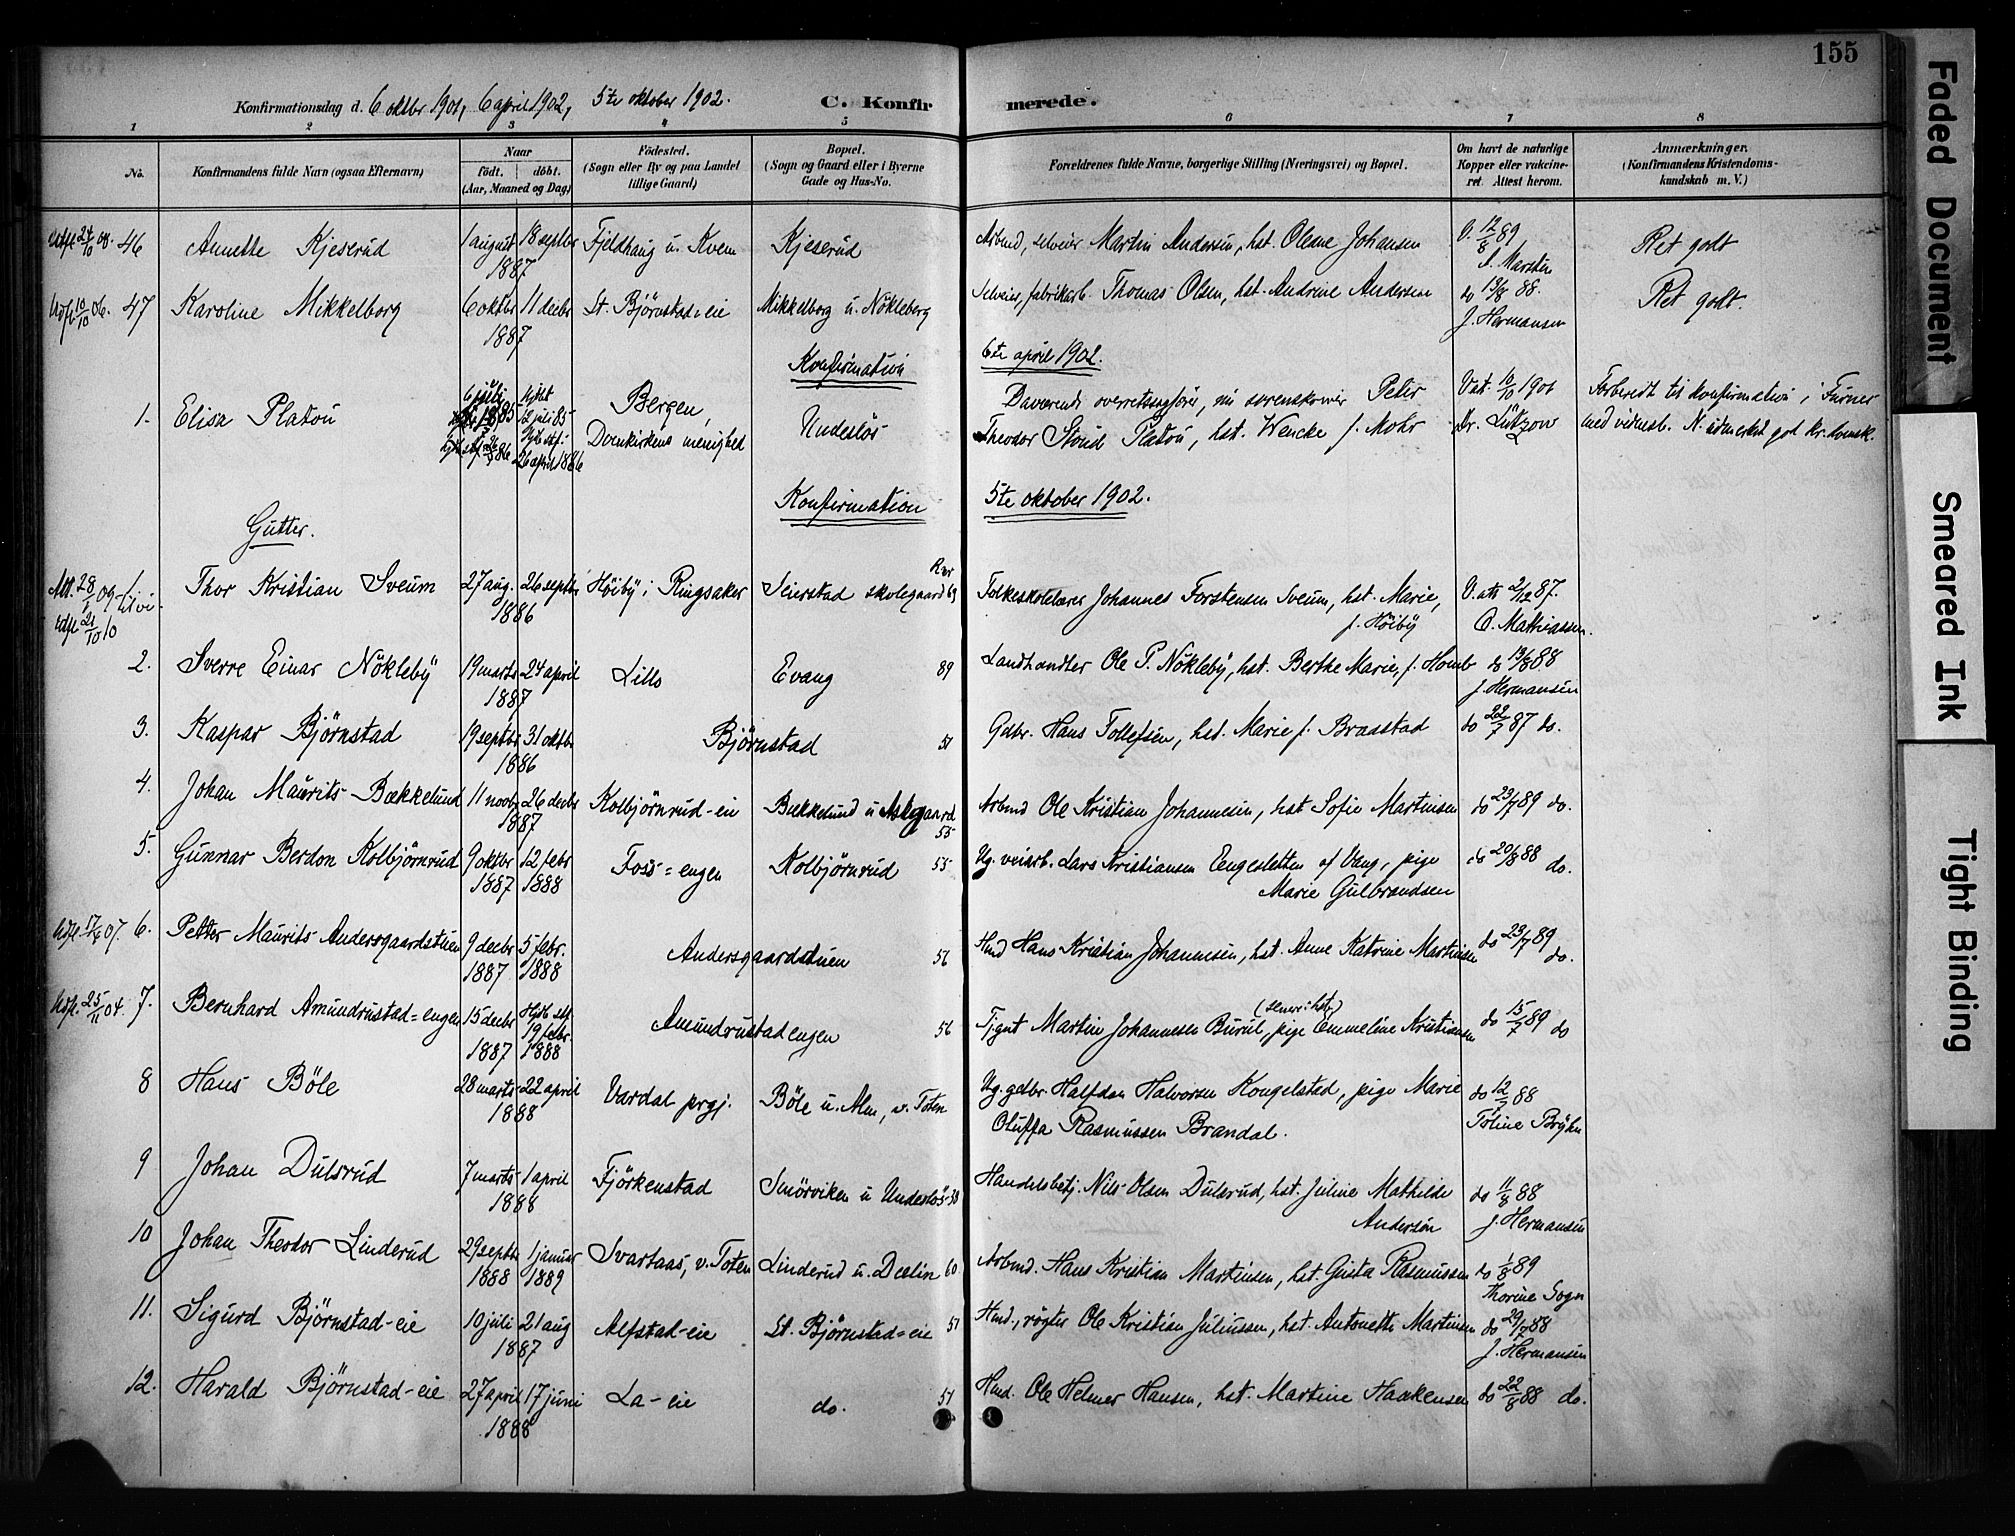 155
Konfirmationsdag d. 6 oktbr 1901, 6 april 1902, 5te oktober 1902. C. Konfirmerede.
1 2 3 4 5 6 7 8
No. Konfirmandens fulde Navn (ogsaa Efternavn) Naar født. døbt. (Aar, Maaned og Dag) Födested. (Sogn eller By og paa Landet tillige Gaard) Bopæl. (Sogn og Gaard eller i Byerne Gade og Hus-No. Forældrenes fulde Navne, borgerlige Stilling (Næringsvei) og Bopæl. Om havt de naturlige Kopper eller vaccineret. Attest herom. Anmærkninger. (Konfirmandens Kristendomskundskab m. V.)
Udfl 24/10 08. 46 Annette Kjeserud 1 august 18 septbr 1887 Fjeldhaug u. Kvem Kjeserud Arbmd, selveier Martin Andersen, hst. Olesne Johansen V. 12/8 89 A. Marstin Ret godt
Udfl 10/10 06. 47 Karoline Mikkelborg 6 oktbr 11 decbr 1887 St. Björnstad-eie Mikkelborg u. Nökleberg Selveier, fabrikarb. Thomas Olsen, hst. Andrine Andersen do 13/8 88. J. Hermansen Ret godt.
Konfirmation 6te april 1902.
1. Elisa Platou 6 juli 1885 hjdbt 12 juli 85 26 april 1886 Bergen, Domkirkens menighed Undeslös Daværende overretssagförer, nu sorenskriver Peter Theodor Stoud Platou, hst. Wencke f. Mohr Vat. 10/10 1901 Dr. Lützow Forberedt til konfirmation i Furnes med vidnesb. N. udmerket god kr.kvensk.
Konfirmation 5te oktober 1902.
Gutter.
Att. 28/1 09 til vi. Udfl 21/10 10 1. Thor Kristian Sveum 27 aug. 26 septbr 1886 Höiby i Ringsaker Seierstad skolegaard 63 Folkeskolelærer Johannes Torstensen Sveum, hst. Marie, f. Höiby V. att 2/12 87. O. Mathiassen.
2. Sverre Einar Nökleby 19 marts 24 april 1887 Lillo Evang 89 Landhandler Ole P. Nökleby, hst. Berthe Marie, f. Homb do 13/8 88 J. Hermansen
3. Kaspar Björnstad 19 septbr 31 oktbr 1886 Björnstad 51 Gdbr. Hans Tollefsen, hst. Marie f. Braastad do 22/7 87 do.
4. Johan Maurits Bækkelund 11 novbr 26 decbr 1887 Kolbjörnrud-eie Bækkelund u Askgaard 55 Arbmd Ole Kristian Johannesen, hst Sofie Martinsen do 23/7 89 do.
5. Gunnar Berdon Kolbjörnrud 9 oktbr 1887 12 febr 1888 Foss-engen Kolbjörnrud 55 Ug. veiarb. Lars Kristiansen Engesletten af Vang, pige Marie Gulbrandsen do 20/8 88 do.
Udfl. 17/6 07. 6. Petter Maurits Andersgaardstuen 9 decbr 1887 5 febr. 1888 Andersgaardstuen 56 Hmd Hans Kristian Johannesen, hst. Anne Katrine Martinsen do 23/7 89 do.
Udfl. 25/11 04. 7. Bernhard Amundrustad-engen 15 decbr 1887 19 febr. 1888 Amundrustadengen 56 Tjgut Martin Johannesen Burul, pige (senere hst) Emmeline Kristiansen do 15/7 89 do
8 Hans Böle 28 marts 22 april 1888 Vardal prgj. Böle u. Alm, v. Toten Ug. gdbr. Halfdan Halvorsen Kongelstad, pige Marie Oluffa Rasmussen Brandal. do 12/7 88 Toline Bryhn
9 Johan Dulsrud 7 marts 1 april 1888 Fjörkenstad Smörviken u Undeslös 38 Handelsbetj. Nils Olsen Dulsrud, hst. Juline Mathilde Andersen do 11/8 88 J. Hermansen
10 Johan Theodor Linderud 29 septbr 1888 1 januar 1889 Svartaas, v. Toten Linderud u. Dælin 60 Arbmd. Hans Kristian Martinsen, hst. Gusta Rasmussen do 1/8 89 Thorine Sogn
11. Sigurd Björnstad-eie 10 juli 21 aug 1887 Alfstad-eie St. Björnstad-eie 51 Hmd., rögter Ole Kristian Juliussen, hst. Antonette Martinsen do 29/7 88 J. Hermansen
12. Harald Björnstad-eie 27 april 17 juni 1888 La-eie do. 51 Hmd. Ole Helmer Hansen, hst. Martine Haakensen do 22/8 88 do.
Faded Document
Smeared Ink
Tight Binding